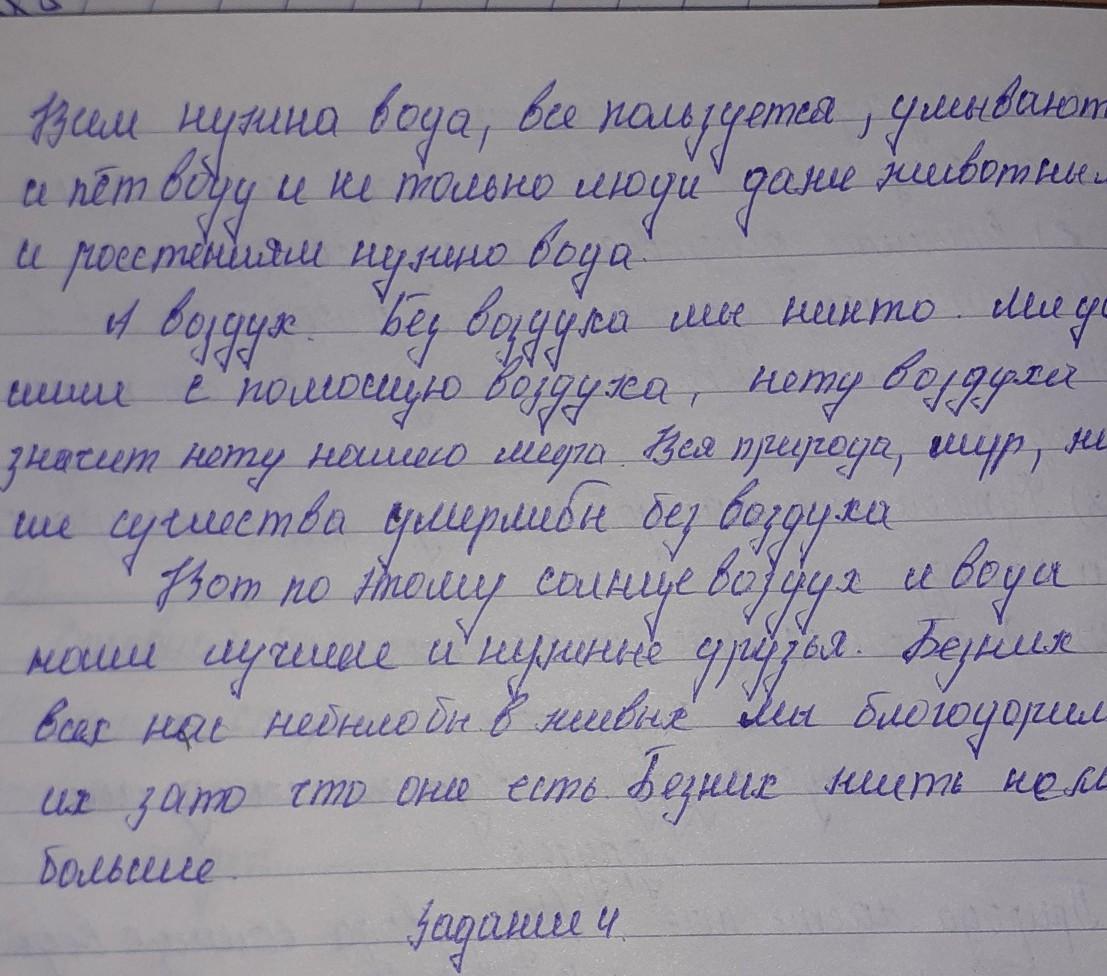 Всем нужна вода, все пользуется, умывают
и пёт воду и не только люди даже животным
и росстениям нужно вода.
А воздух. Без воздуха мы никто. Мы ды
шим с помощую воздуха, нету воздуха
значит нету нашего мира. Вся природа, мир,
сущиства умерлибы без воздуха
Вот по этому солнце воздух и вода
наши лучшие и нужные друзья. Безних
всех нас небылобы в живых мы благодорим
их зато что они есть. Безних жить нам
больше.
Задание 4.